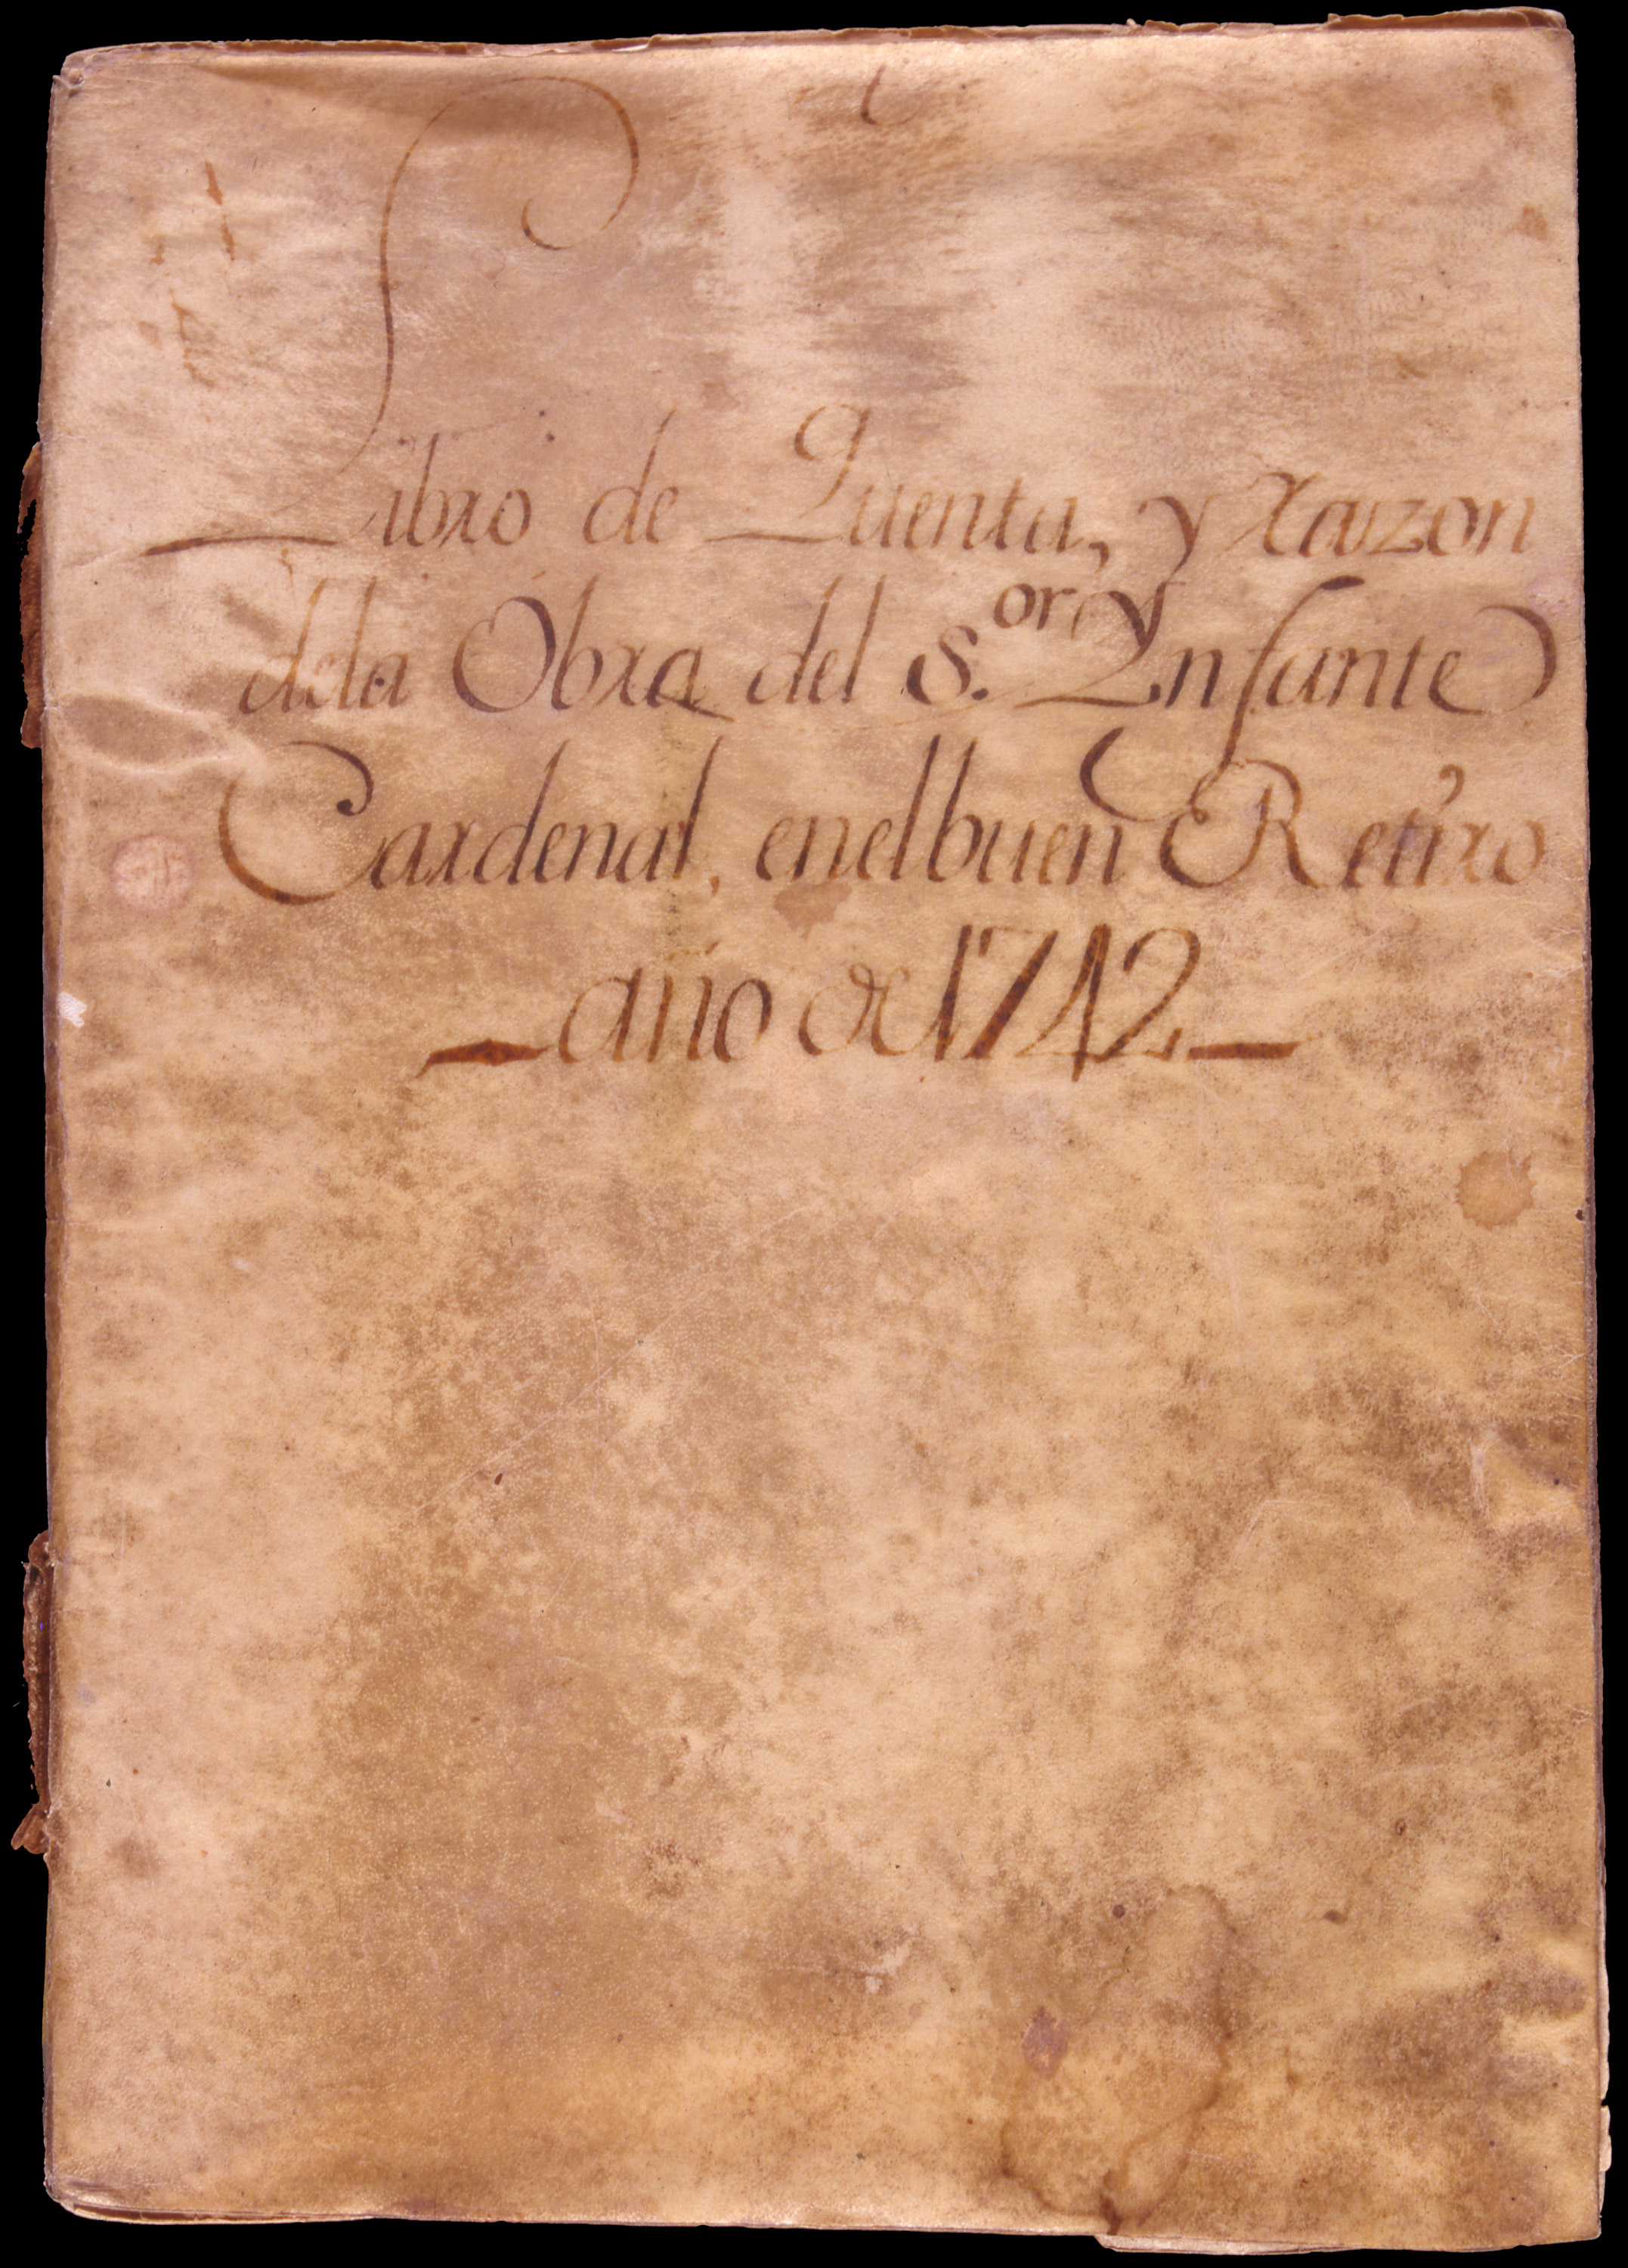 Libro de Quenta, y razon
dela Obra del S.or Ynfante
Cardenal, enel buen Retiro
año de 1742